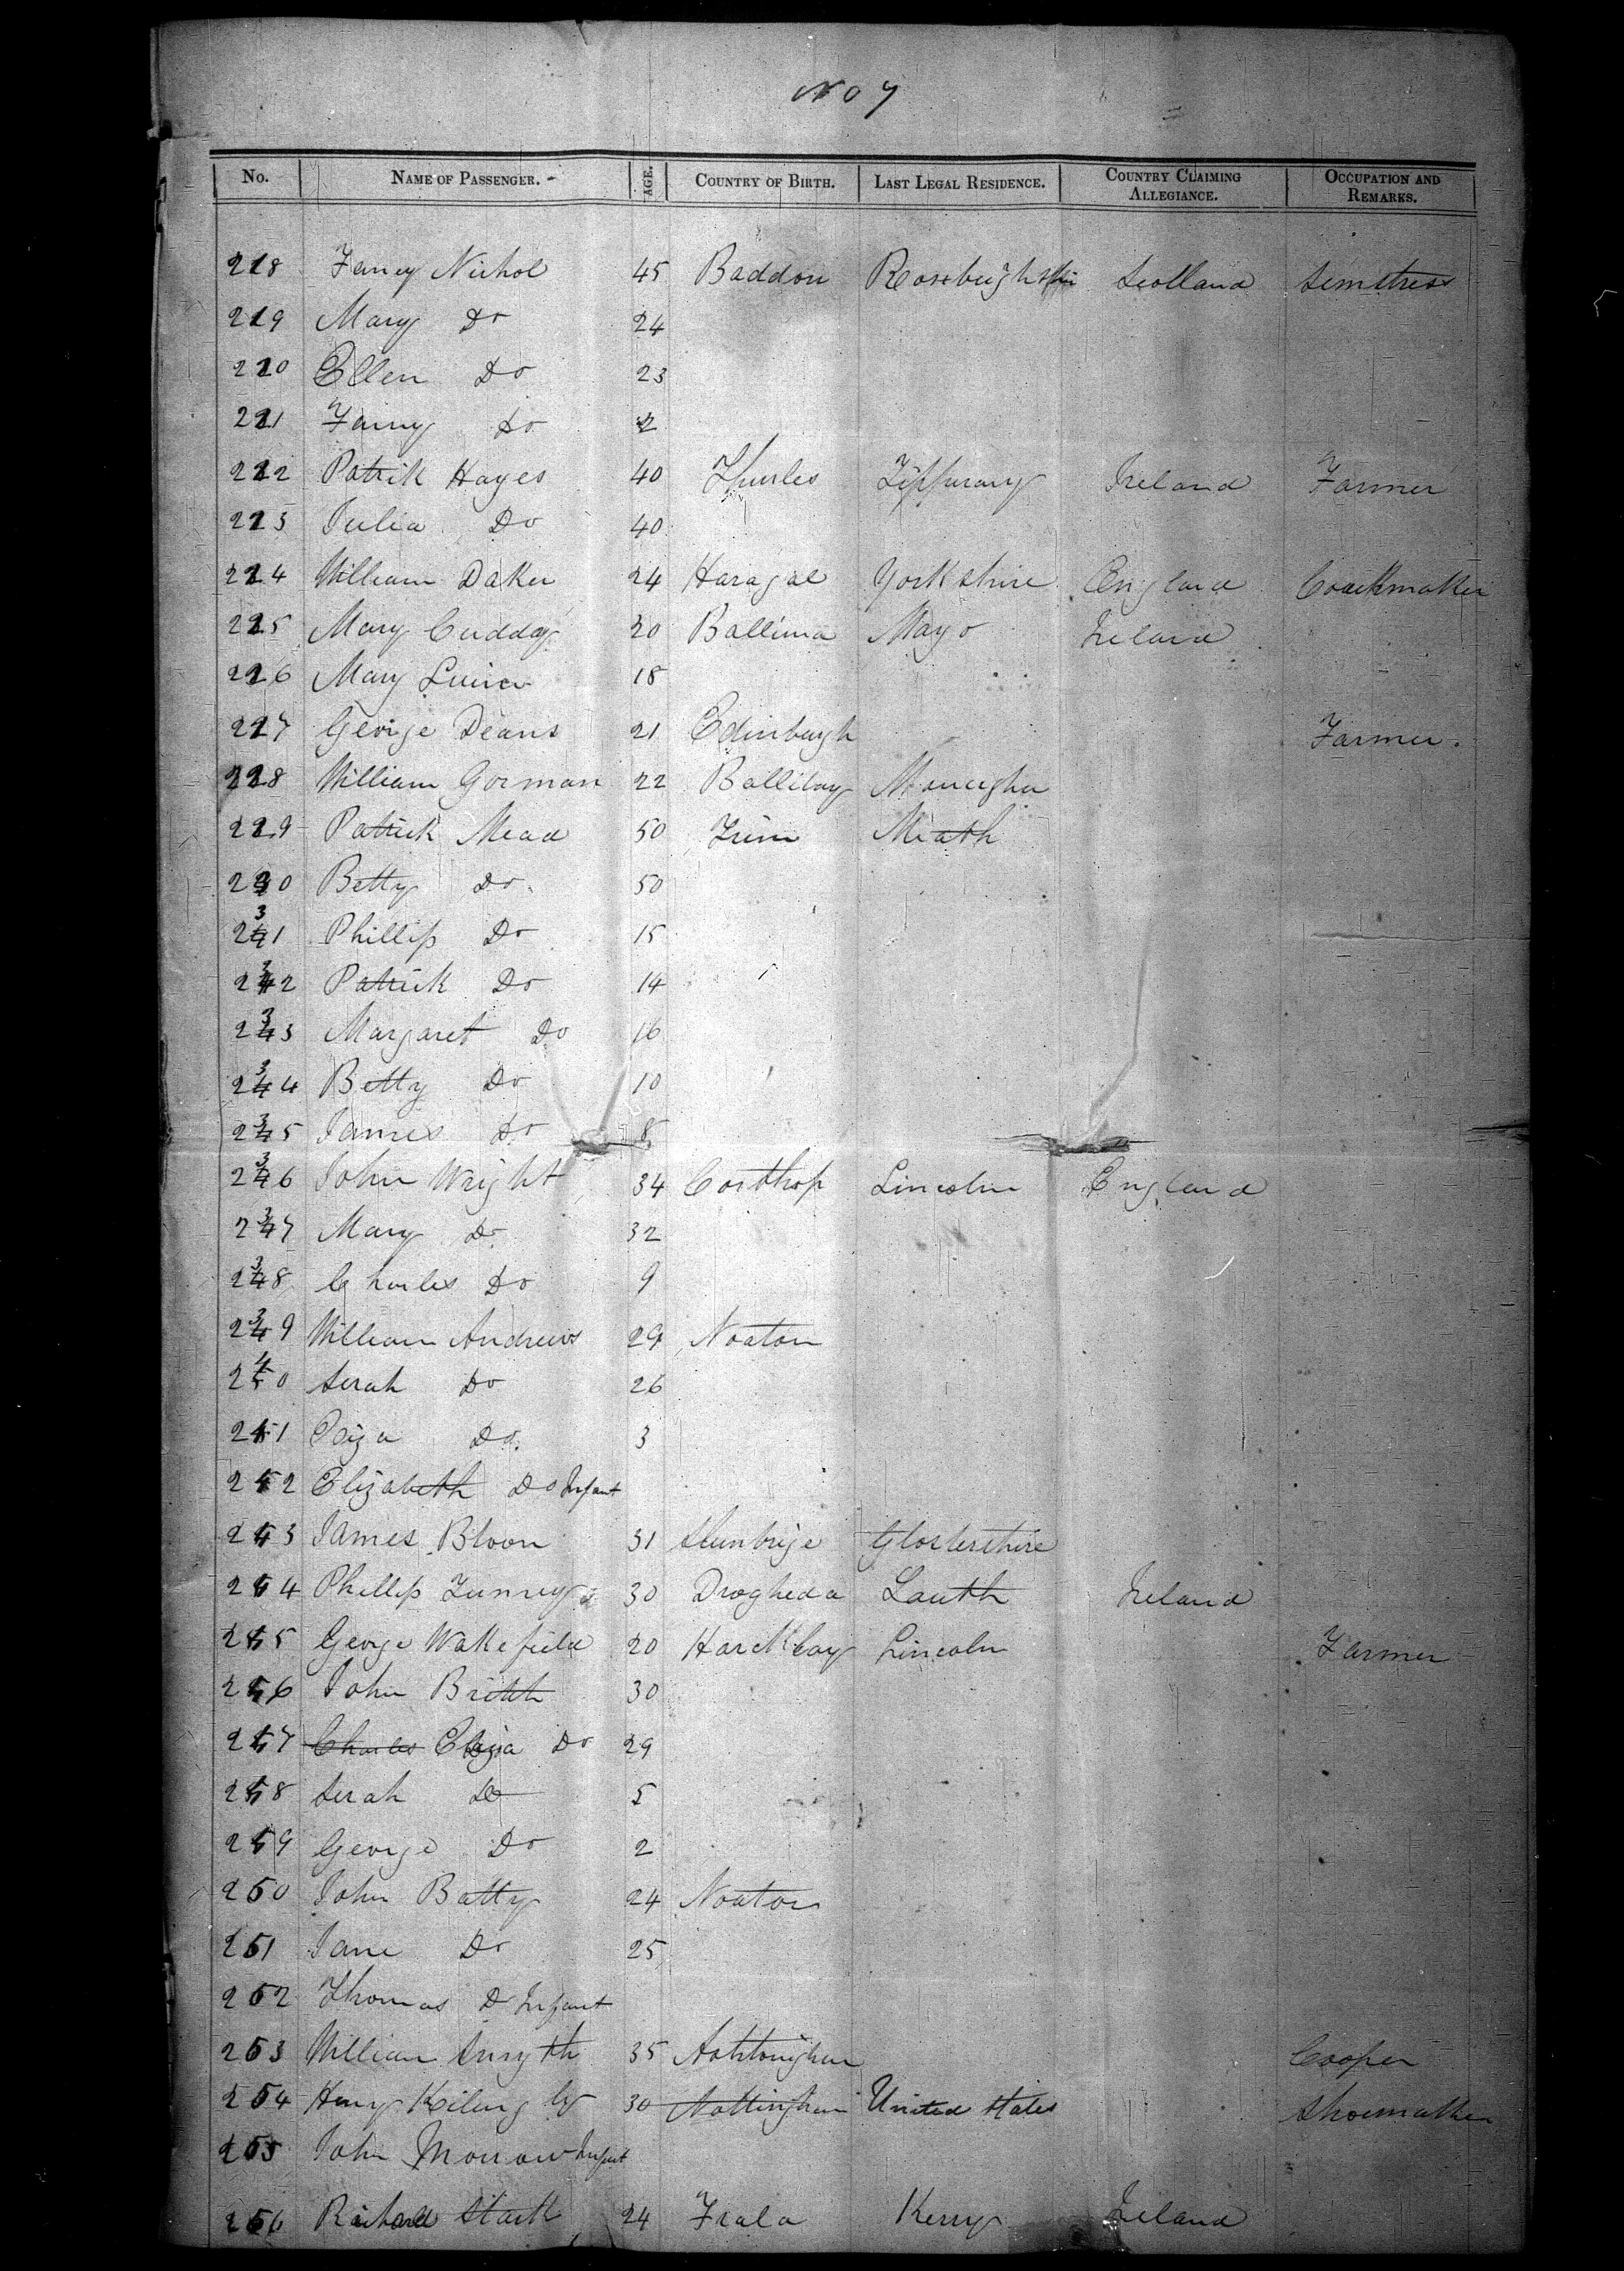 No 7
No. NAME OF PASSENGER. AGE. COUNTRY OF BIRTH. LAST LEGAL RESIDENCE. COUNTRY CLAIMING ALLEGIANCE. OCCUPATION AND REMARKS.
218 Fancy Nichol 45 Baddon Scotland Semstress
219 Mary Do 24
220 Ellen Do 23
221 Fanny Do 2
222 Patrik Hayes 40 Thurles Tipperary Ireland Farmer
223 Julia Do 40
224 William Daker 24 Haragal Yorkshire England Coackmaker
225 Mary Cuddy 20 Ballina Mayo Ireland
226 Mary 18
227 George Deans 21 Edinburgh Farmer.
228 William Gorman 22 Ballibay Monaghan
229 Patrick Mead 50 Trim Meath
230 Betty Do 50
231 Phillip Do 15
232 Patrick Do 14
233 Margaret Do 16
234 Betty Do 10
235 James Do 8
236 John Wright 34 Corthop Lincoln England
237 Mary Do 32
238 Charles Do 9
239 William Andrews 29 Noaton
240 Serah Do 26
241 Do 3
242 Elizabeth Do Infant
243 James Bloon 31 Glostershire
244 Phillip 30 Drogheda Louth Ireland
245 George Wakefield 20 Lincoln Farmer
246 John Britt 30
247 Charles Eliza Do 29
248 Serah Do 5
249 George Do 2
250 John Batty 24 Noaton
251 Jane Do 25
252 Thomas Do Infant
253 William Smyth 35 Cooper
254 Henry 30 Nottingham United States Shoemaker
255 John Morrow Infant
256 Richard Stack 24 Trala Kerry Ireland